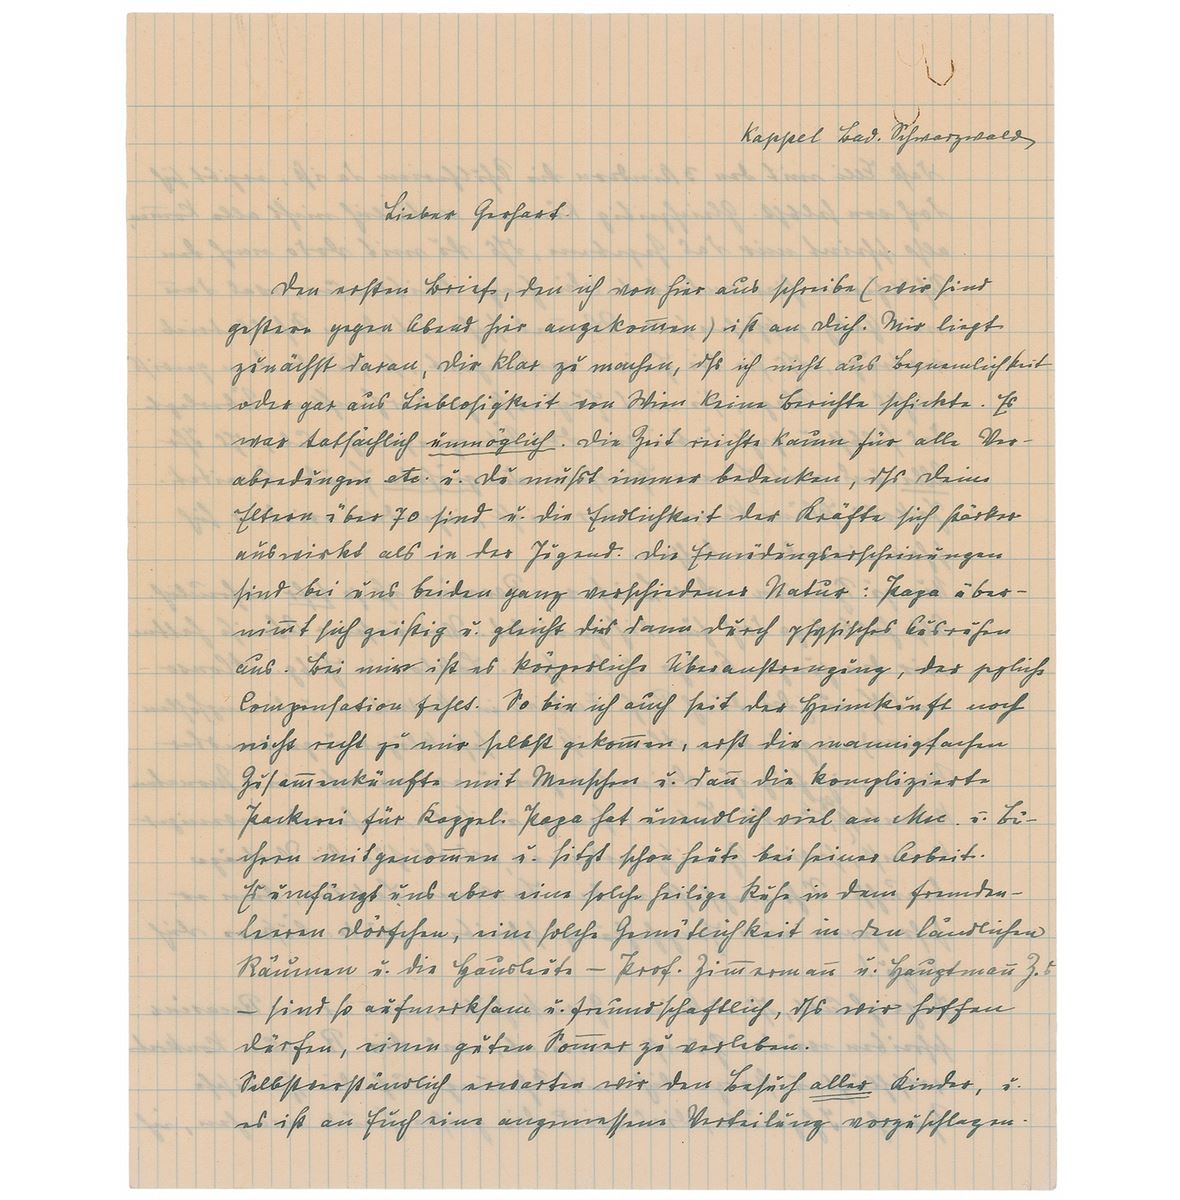 Kappel Bad. Schwarzwald
Lieber Gerhart.
Den ersten Brief, den ich von hier aus schreibe (wir sind
gestern gegen Abend hier angekom̅en) ist an Dich. Mir liegt
zunächst daran, Dir klar zu machen, dſs ich nicht aus Bequemlichkeit
oder gar aus Lieblosigkeit von Wien keine Berichte schickte. Es
war tatsächlich unmöglich. Die Zeit reichte kaum für alle Ver-
abredungen etc. u. Du mußt immer bedenken, dſs Deine
Eltern über 70 sind u. die Endlichkeit der Kräfte sich stärker
auswirkt als in der Jugend. Die Ermüdungserscheinungen
sind bei uns beiden ganz verschiedener Natur: Papa über-
nim̅t sich geistig u. gleicht dies dann durch physisches Ausruhen
aus. Bei mir ist es körperliche Überanstrengung, der jegliche
Compensation fehlt. So bin ich auch seit der Heimkunft noch
nicht recht zu mir selbst gekom̅en, erst die mannigfachen
Zusam̅enkünfte mit Menschen u. dan̅ die komplizierte
Packerei für Kappel. Papa hat unendlich viel an Msc. u. Bü-
chern mitgenom̅en u. sitzt schon heute bei seiner Arbeit.
Es umfängt uns aber eine solche heilige Ruhe in dem fremden-
leeren Dörfchen, eine solche Gemütlichkeit in den ländlichen
Räumen u. die Hausleute – Prof. Zim̅erman̅ u. Hauptman̅ Z.s
– sind so aufmerksam u. freundschaftlich, dſs wir hoffen
dürfen, einen guten Som̅er zu verleben.
Selbstverständlich erwarten wir den Besuch aller Kinder, u.
es ist an Euch eine angemessene Verteilung vorzuschlagen.